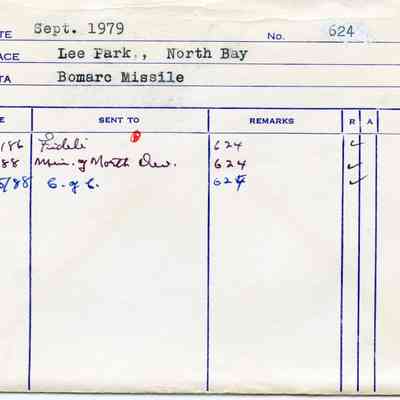 TE Sept. 1979 No. 624
ACE Lee Park., North Bay
TA Bomarc Missile
E SENT TO REMARKS R A
/86 Fideli 624 ✓
88 Min. of North Dev. 624 ✓
5/88 C. of C. 624 ✓